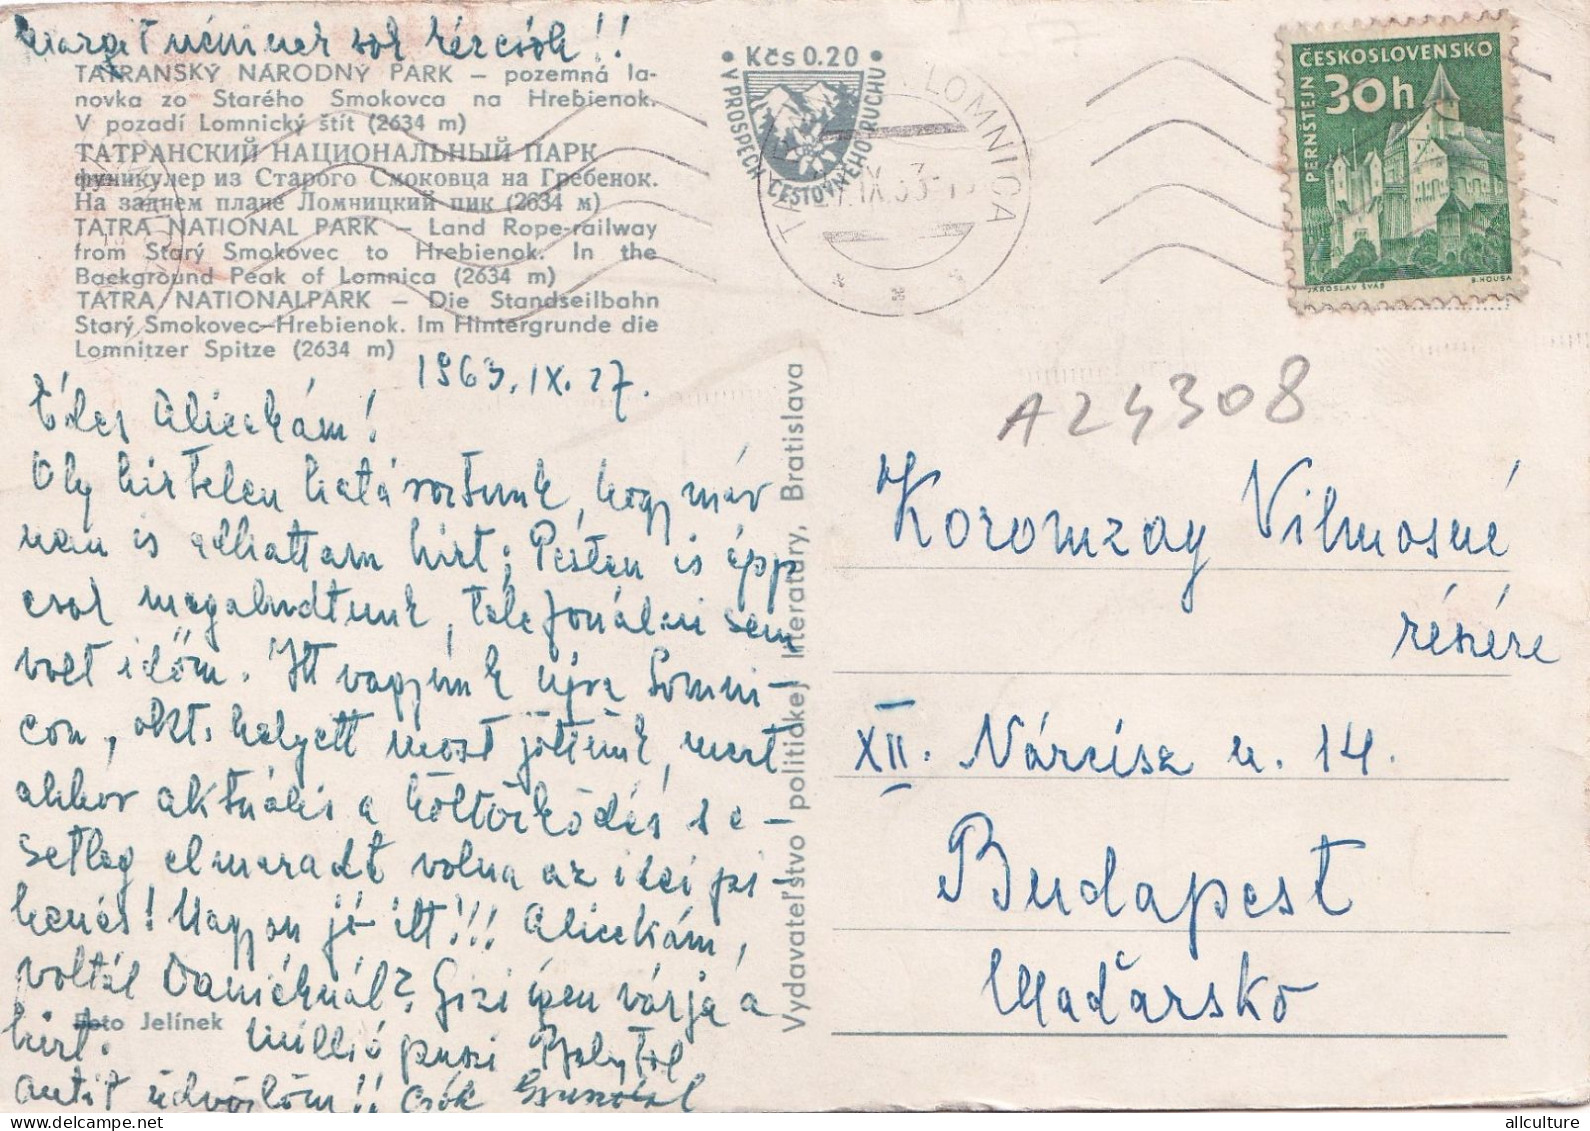 Margit néninek sok kézcsók!!
TATRANSKÝ NÁRODNÝ PARK – pozemná la-
novka zo Starého Smokovca na Hrebienok.
V pozadí Lomnický štít (2634 m)
ТАТРАНСКИЙ НАЦИОНАЛЬНЫЙ ПАРК
фуникулер из Старого Смоковца на Гребенок.
На заднем плане Ломницкий пик (2634 м)
TATRA NATIONAL PARK – Land Rope-railway
from Starý Smokovec to Hrebienok. In the
Background Peak of Lomnica (2634 m)
TATRA NATIONALPARK – Die Standseilbahn
Starý Smokovec–Hrebienok. Im Hintergrunde die
Lomnitzer Spitze (2634 m)
1963. IX. 27.
Édes Alicekám!
Oly hirtelen határoztunk, hogy már
nem is adhattam hírt; Pesten is épp
csak megaludtunk, telefonálni sem
volt időm. Itt vagyunk újra Lomni-
con, okt. helyett most jöttünk, mert
akkor aktuális a költözködés s e-
setleg elmaradt volna az idei pi-
henés! Nagyon jó itt!!! Alicekám,
voltál Daniéknál? Gizi épen várja a
hírt.
Foto Jelínek
Millió puszi
üdvözlöm!! Csók
Kčs 0.20
V PROSPECH CESTOVNÉHO RUCHU
LOMNICA
ČESKOSLOVENSKO
30h
PERNŠTEJN
JAROSLAV ŠVÁB
B. HOUSA
A24308
Vydavateľstvo politickej literatúry, Bratislava
Koromzay Vilmosné
részére
XII. Nárcisz u. 14.
Budapest
Maďarsko
allculture